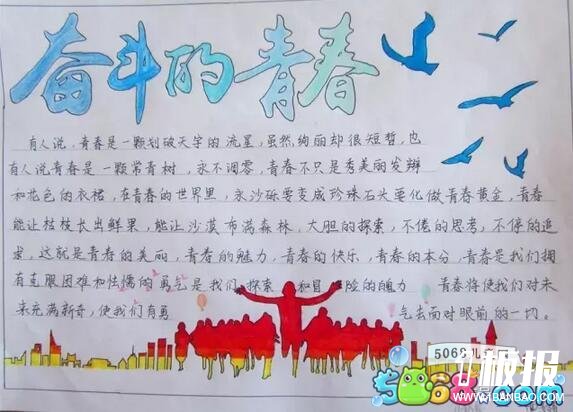 奋斗的青春
有人说,青春是一颗划破天宇的流星,虽然绚丽却很短暂,也
有人说青春是一颗常青树,永不调零,青春不只是秀美的发辫
和花色的衣裙,在青春的世界里,永沙砾要变成珍珠石头要化做青春黄金,青春
能让枯枝长出鲜果,能让沙漠布满森林,大胆的探索,不倦的思考,不停的追
求,这就是青春的美丽,青春的魅力,青春的快乐,青春的本分,青春是我们拥
有克服困难和怯懦的勇气是我们探索和冒险的魄力 青春将使我们对未
来充满新奇,使我们有勇气去面对眼前的一切。
5068儿
板报
5068.com
WWW.1BANBAO.COM